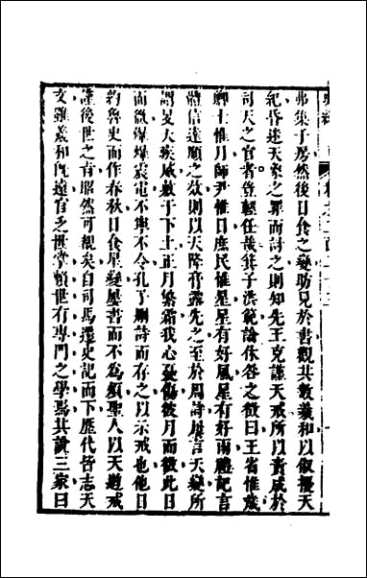 弗集于房然後日食之變昉見於書觀其數羲和以俶擾天
紀昏迷天象之罪而討之則知先王克謹天戒所以責成於
司天之官者豈輕任哉箕子洪範論休咎之徵曰王省惟歲
卿士惟月師尹惟日庶民惟星星有好風星有好雨禮記言
體信達順之效則以天降膏露先之至於周詩屢言天變所
謂旻天疾威敷于下土正月繁霜我心憂傷彼月而微此日
而微爗爗震電不寧不令孔子刪詩而存之以示戒也他日
約魯史而作春秋日食星變屢書而不為煩聖人以天道戒
謹後世之旨昭然可覩矣自司馬遷史記而下歷代皆志天
文雖羲和既遠官乏世掌賴世有專門之學焉其說三家曰